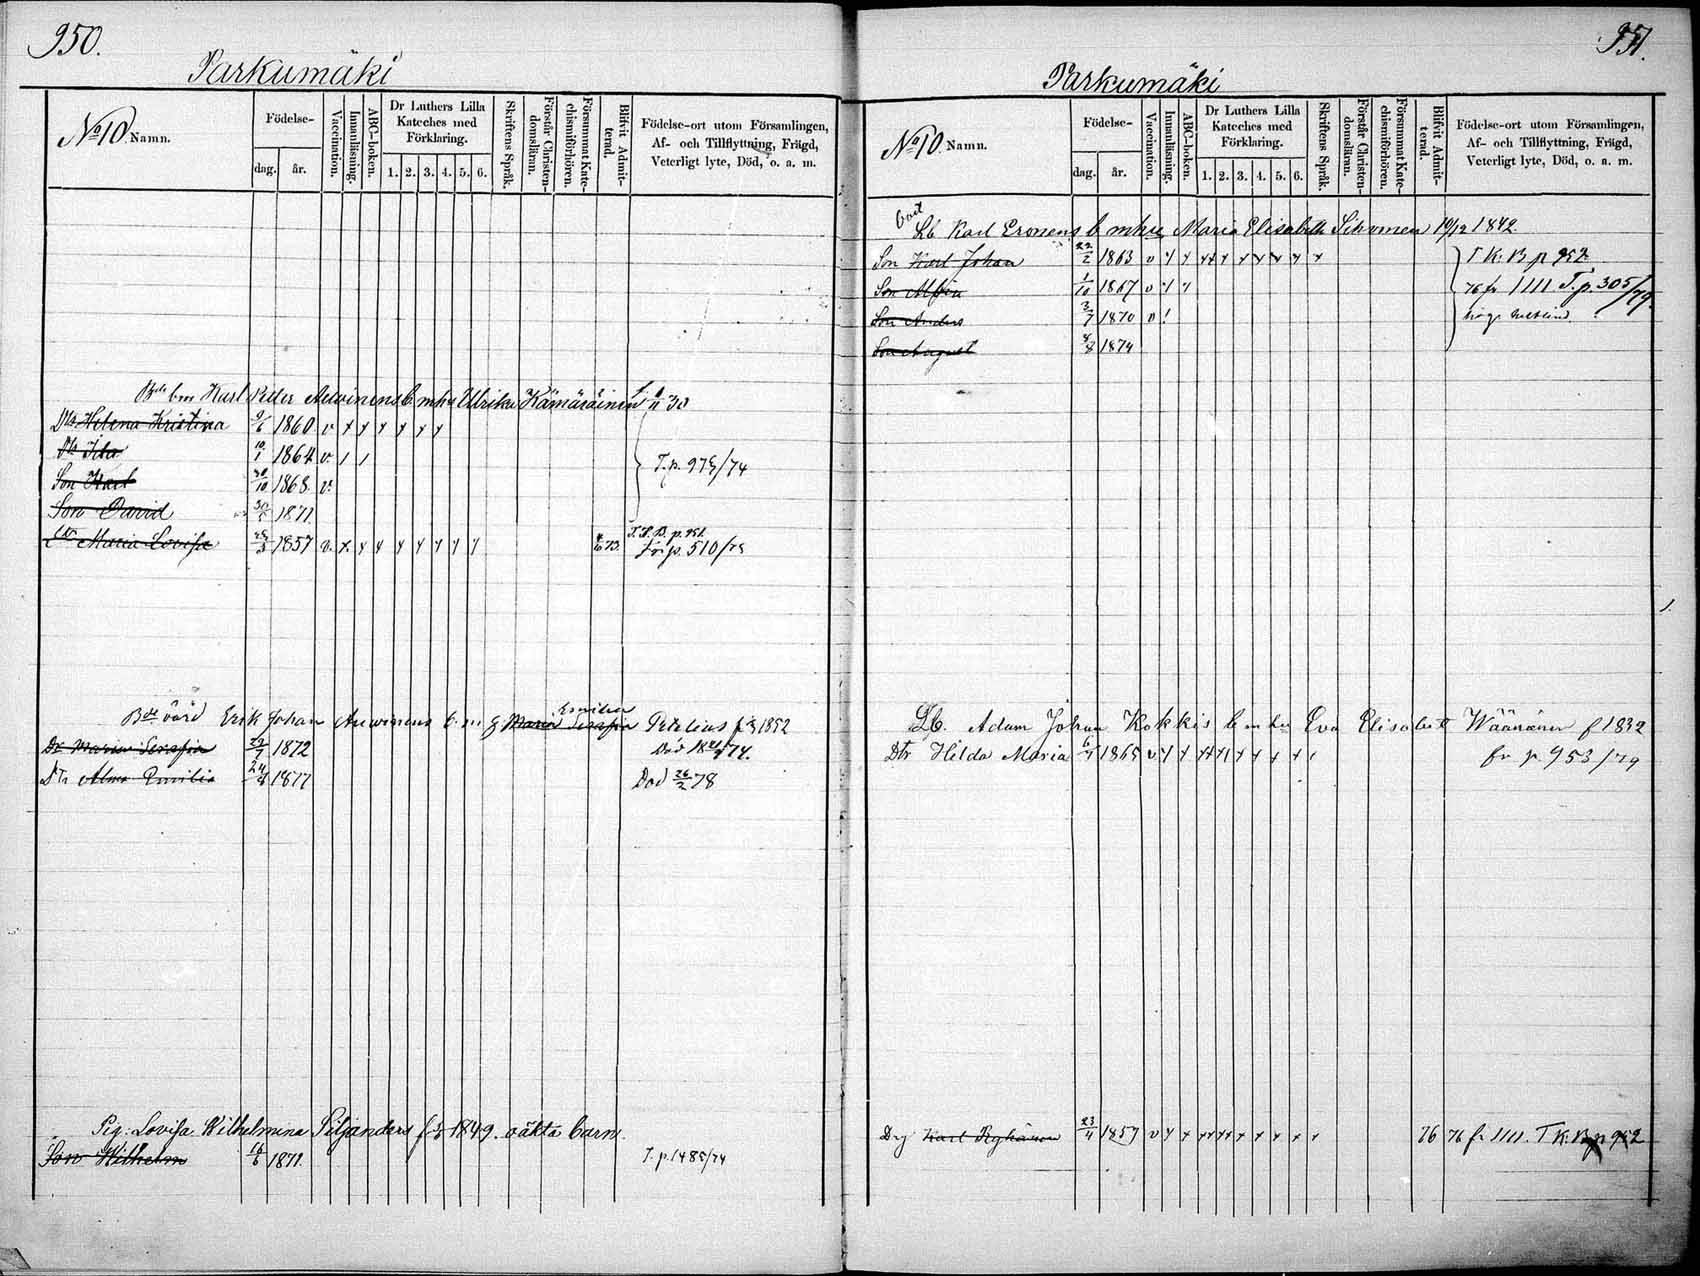 950.
Parkumäki
No 10. Namn.
Födelse-
dag. år.
Vaccination.
Innanläsning.
ABC-boken.
Dr Luthers Lilla
Kateches med
Förklaring.
1. 2. 3. 4. 5. 6.
Skriftens Språk.
Förstår Christen-
domsläran.
Försummat Kate-
chismiförhören.
Blifvit Admit-
terad.
Födelse-ort utom Församlingen,
Af- och Tillflyttning, Frägd,
Veterligt lyte, Död, o. a. m.
Karl Peter b. m hu Ulrika Kämäräinen
Dtr Helena Kristina 9/6 1860 v.
Dtr 10/1 1864 v.
Son Karl 1868 v. T. p. 975/74
Son David 1871
Maria Lovisa 1857 v. 73. T. K. B. p. 951.
p. 510/75
Erik Johan Auvinens b. m g Maria Serafia Petelius 1852
Emilia
Dr Maria Serafia 1872 Död 74.
Dtr Alma Emilia 24/4 1877 Död 26/2 78
Pig. Lovisa Wilhelmina Siljanders f 1849. oäkta barn.
Son Wilhelm 1871. T. p. 1485/74
951.
Parkumäki
No 10. Namn.
Födelse-
dag. år.
Vaccination.
Innanläsning.
ABC-boken.
Dr Luthers Lilla
Kateches med
Förklaring.
1. 2. 3. 4. 5. 6.
Skriftens Språk.
Förstår Christen-
domsläran.
Försummat Kate-
chismiförhören.
Blifvit Admit-
terad.
Födelse-ort utom Församlingen,
Af- och Tillflyttning, Frägd,
Veterligt lyte, Död, o. a. m.
Lb Karl Eronens b m hu Maria Elisabeth Sihvonen 19/12 1842.
Son Karl Johan 22/2 1863 v T K. B p 952
Son 1/10 1867 v 76 fr 1111 T. p. 305/79
Son Anders 3/7 1870 v
Son August 4/8 1874
Lb. Adam Johan Kokkis b m hu Eva Elisabett Wäänänen f 1832
Dtr Hilda Maria 1865 v fr p. 953/79
Drg Karl 23/4 1857 v 76 76 fr 1111. T K. B p 952